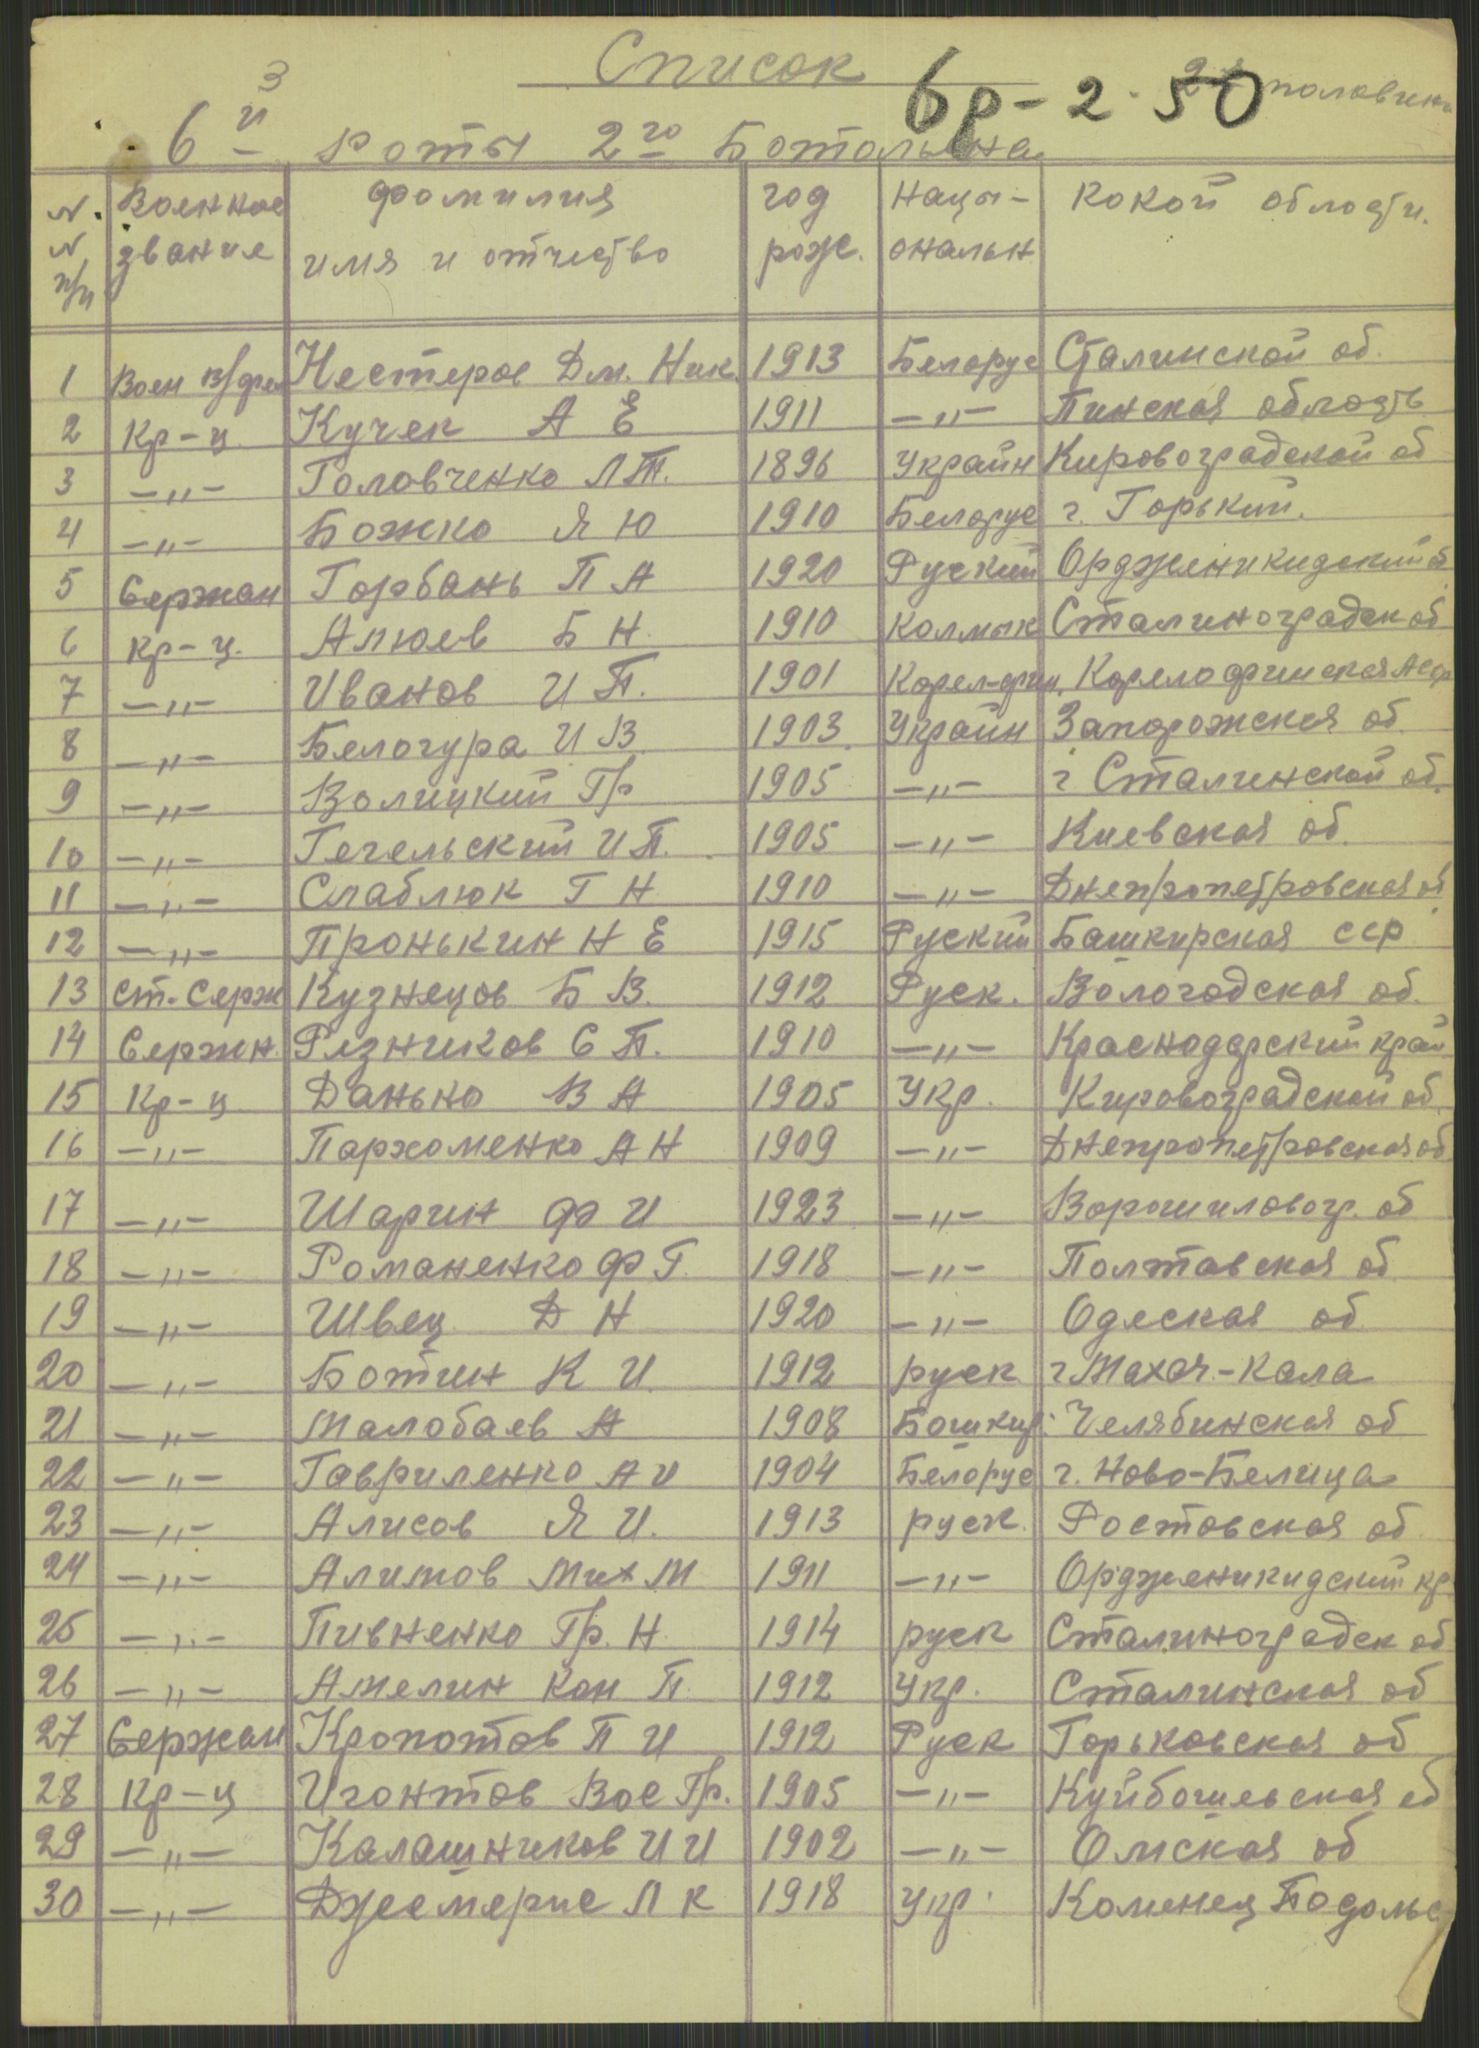 Список
3
6р-2.50
2я половина
6й роты 2гоБотольена
N. N п/п Военное звание фомилия имя и отчество год рож. нацы-ональн Кокой облости.
1 Воен в/фел Нестеров Дм. Ник. 1913 Белорус Сталинской об.
2 Кр-ц. Кучек А Е 1911 -"- Пинская область
3 -"- Головченко Л Т. 1896 Украин Кировоградской об
4 -"- Божко Я Ю 1910 Белорус г. Горький.
5 Сержан Горбань П А 1920 Руский Орджени кидский об
6 кр-ц. Алюев Б Н. 1910 Колмык Сталиноградск об
7 -"- Иванов И П. 1901 Карел-фин. Карелофинская Аср
8 -"- Белогура И В. 1903. Украин Запорожская об.
9 -"- Волицкий Гр 1905 -"- г Сталинской об.
10 -"- Гегельский И П. 1905 -"- Киевская об.
11 -"- Слаблюк Г Н 1910 -"- Днепропетровская об.
12 -"- Пронькин Н Е 1915 Руский Башкирская сср
13 Ст. Серж Кузнецов Б В. 1912 Руск. Вологодская об.
14 Сержн. Резников С П. 1910 -"- Краснодарский край
15 Кр-ц Данько В А 1905 Укр. Кировоградской об.
16 -"- Пархоменко А Н 1909 -"- Днепропетровская об
17 -"- Шарин Ф И 1923 -"- Ворошиловогр. об
18 -"- Романенко Ф Г. 1918 -"- Полтавская об
19 -"- Швец Д Н 1920 -"- Одеская об
20 -"- Ботин К И. 1912 руск г Махач-Кала
21 -"- Малобаев А 1908 Бошкир. Челябинская об
22 -"- Гавриленко А И 1904 Белорус г. Ново-Белица
23 -"- Алисов Я И. 1913 руск. Ростовская об
24 -"- Алимов Мих М 1911 -"- Ордженикидский кр
25 -"- Пивненко Гр. Н 1914 руск Сталиноградск об
26 -"- Амелин Кон П. 1912 Укр. Сталинская об
27 Сержан Кропотов П И 1912 Руск Горьковская об
28 Кр-ц Игонтов Вас Гр. 1905 -"- Куйбошевская об
29 -"- Калашников И И 1902 -"- Омская об
30 -"- Джемерис Л К 1918 Укр. Коменец Подольс